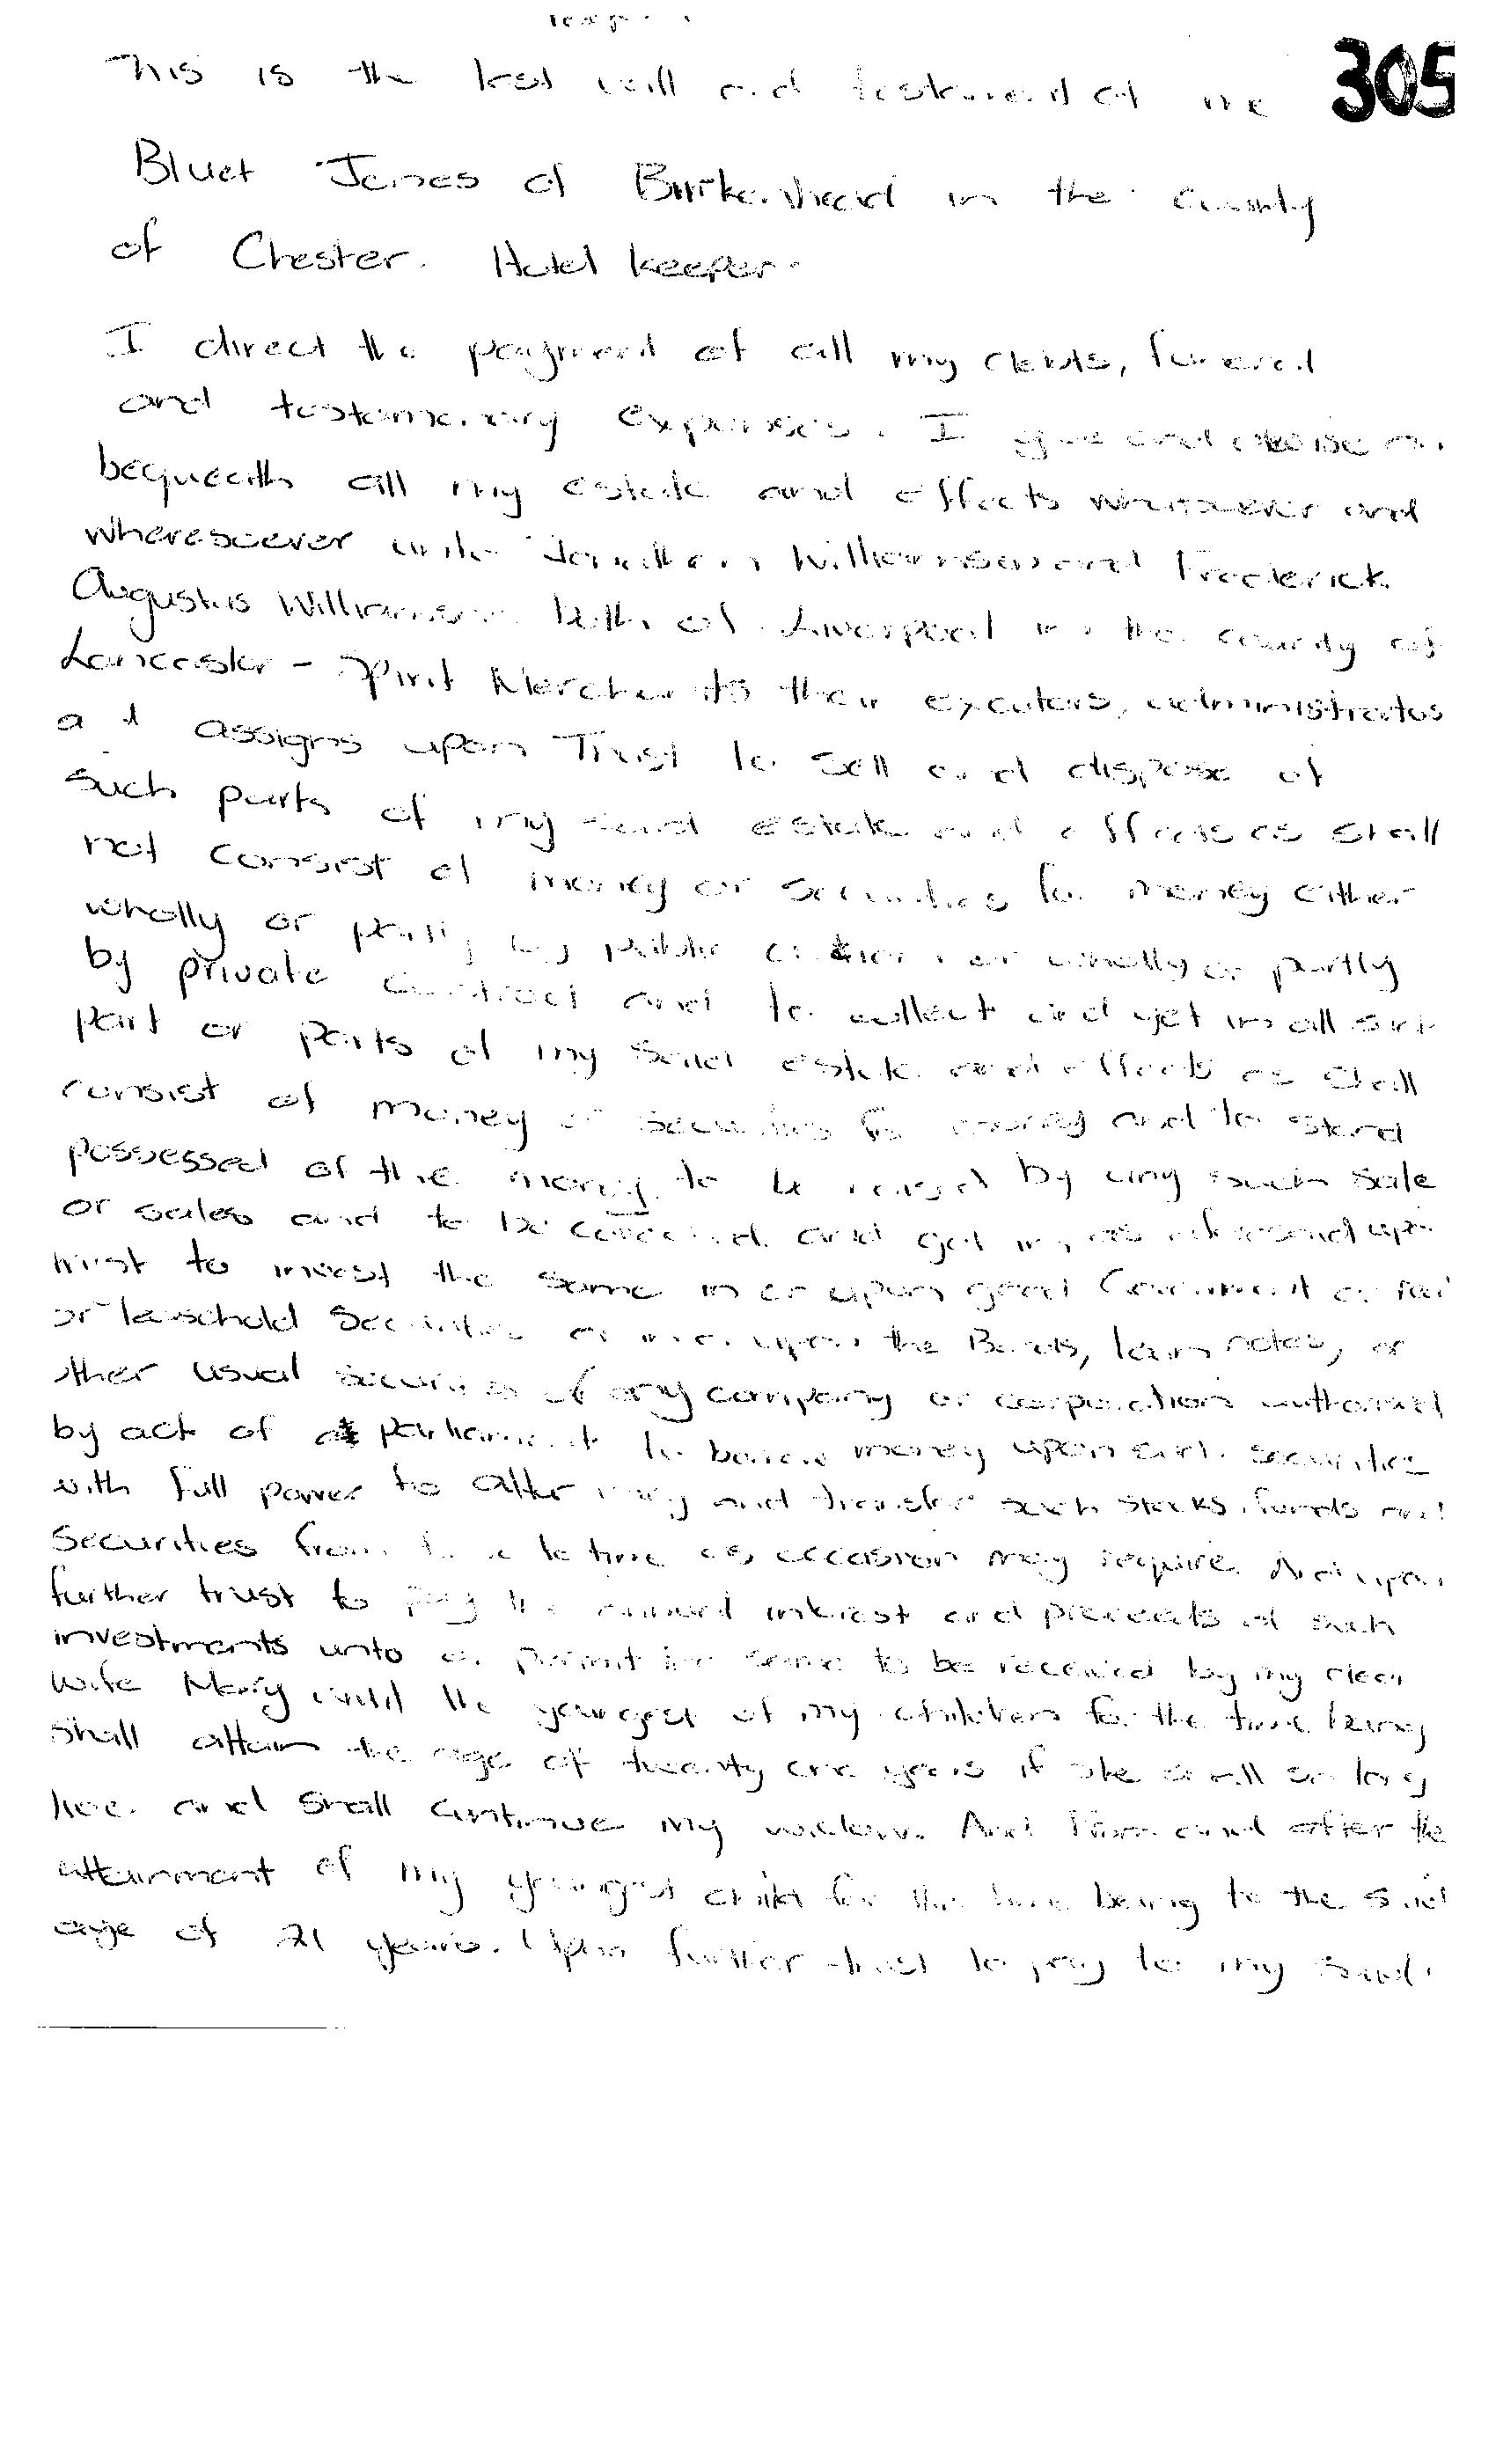 This is the last will and testament of me 305
Bluet Jones of Birkenhead in the county
of Chester. Hotel keeper.
I direct the payment of all my debts, funeral
and testamentary expenses. I give and devise an
bequeath all my estate and effects whatsoever and
wheresoever unto Jonathan Williamson and Frederick
Augustus Williamson both of Liverpool in the county of
Lancaster - Spirit Merchants their executors, administrators
assigns upon Trust to sell and dispose of
such parts of my said estate and effects as shall
not consist of money or securities for money either
wholly or partly by public auction or wholly or partly
by private contract and to collect and get in all such
part or parts of my said estate and effects as shall
consist of money or securities for money and to stand
possessed of the money to be raised by any such sale
or sales and to be collected and got in, as aforesaid upon
trust to invest the same in or upon good Government or real
or leasehold Securities or in or upon the Bonds, loan notes, or
other usual securities of any company or corporation authorised
by act of parliament to borrow money upon such securities
with full power to alter vary and transfer such stocks, funds and
Securities from time to time as occasion may require. And upon
further trust to pay the annual interest and proceeds of such
investments unto or permit the same to be received by my dear
wife Mary until the youngest of my children for the time being
shall attain the age of twenty one years if she shall so long
live and shall continue my widow. And from and after the
attainment of my youngest child for the time being to the said
age of 21 years. Upon further trust to pay to my said